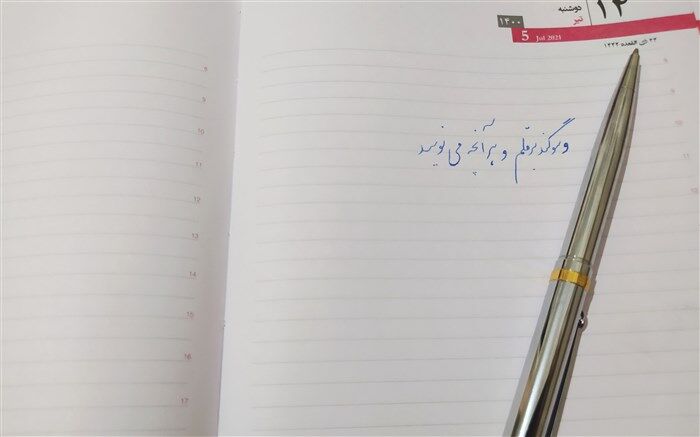 ۱۴
دوشنبه
تیر
۱۴۰۰
5 Jul 2021
۲۴ ذی القعده ۱۴۴۲
و سوگند بر قلم و بر آنچه می نویسد
8
9
10
11
12
13
14
15
16
17
8
9
10
11